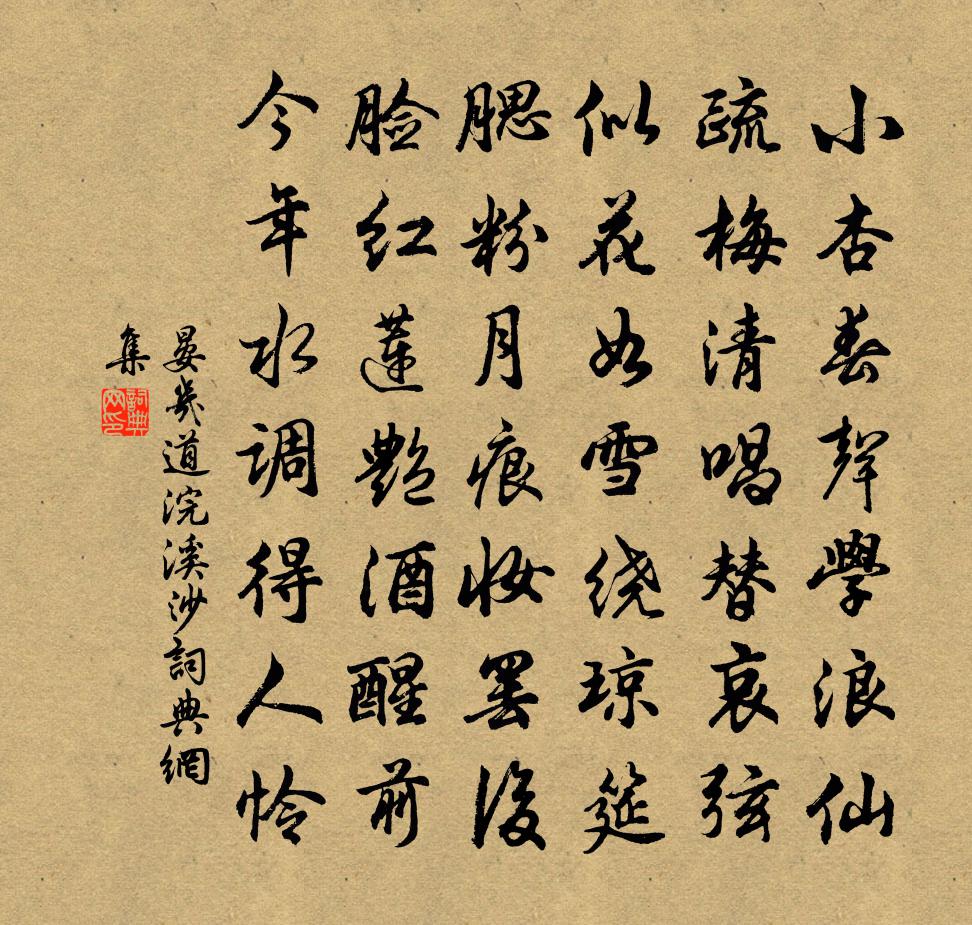 小杏春聲學浪仙
疏梅清唱替哀弦
似花如雪绕琼筵
腮粉月痕妆罢後
脸红莲艷酒醒前
今年水调得人怜
晏幾道浣溪沙詞典網
集
詞典網印